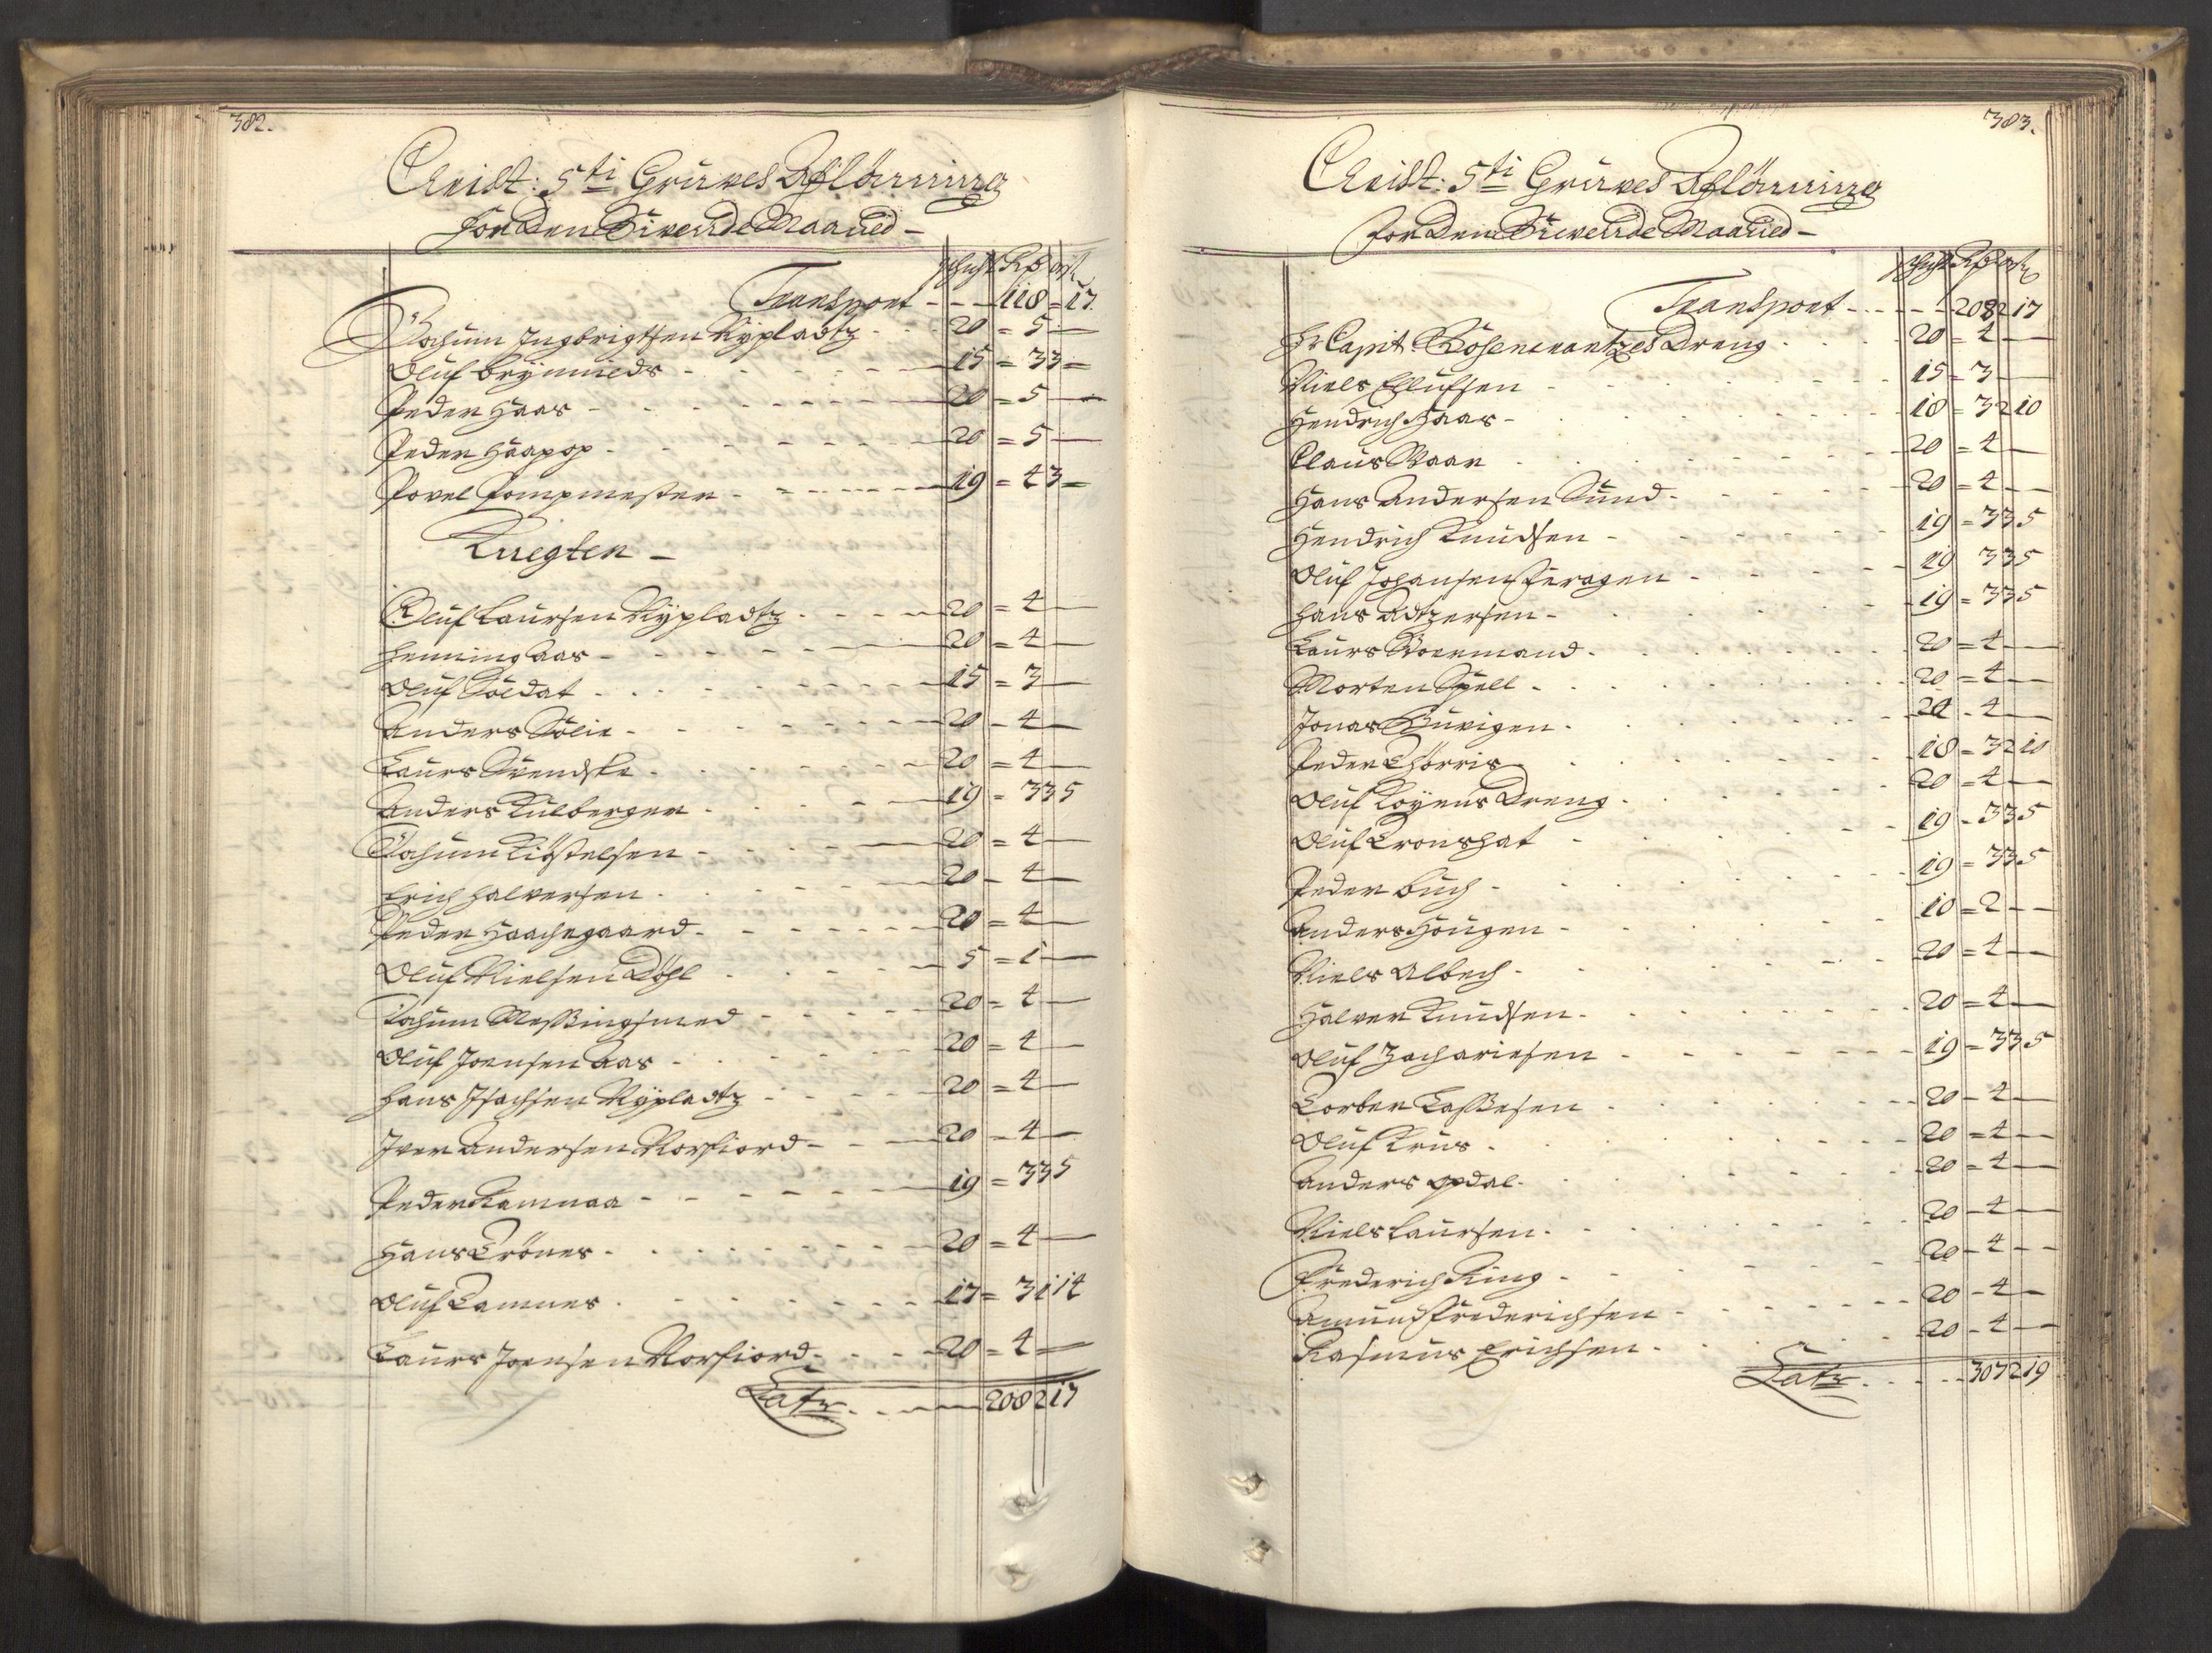 382.
Christ: 5ti Gruves Afflönning
for Den Siuende Maaned -
Schicht Rdr ort ß
Transport - - - 118 = 17
Jochum Ingbrigtsen Nypladtz - - 20 = 5 -
Oluf Brynnilds - - - 15 = 3 3 =
Peder Haar - - - 20 = 5 -
Peder Haapop - - - 20 = 5 -
Povel Pompmester - - - 19 = 4 3 =
Knegter -
Oluf Laursen Nypladtz - - - 20 = 4 -
Henning Aas - - - 20 = 4 -
Oluf Soldat - - - 15 = 3 -
Anders Solie - - - 20 - 4 -
Laurs Svendske - - - 20 = 4 -
Anders Kulberger - - - 19 = 3 3 5
Jochum Kiöstelsen - - - 20 = 4 -
Erich Halvorsen - - - 20 - 4 -
Peder Haachegaard - - - 20 = 4 -
Oluf Nielsen Döhl - - - 5 = 1 -
Jochum Messingsmed - - - 20 = 4 -
Oluf Joensen Aas - - - 20 = 4 -
Hans Isachsen Nypladtz - - - 20 = 4 -
Iver Andersen Norfiord - - - 20 - 4 -
Peder Ramnaa - - - 19 = 3 3 5
Hans Tröner - - - 20 = 4 -
Oluf Tamnes - - - 17 = 3 1 14
Laurs Joensen Norfiord - - - 20 = 4 =
Latr - - - 208 2 17
383.
Christ: 5ti Gruves Afflönning
for Den Siuende Maaned -
Schicht Rdr ort ß
Transport - - - 208 2 17
Hr Capit: Rosencrantzes Dreng - - - 20 = 4 -
Niels Ellufsen - - - 15 = 3 -
Hendrich Haar - - - 18 = 3 2 10
Claus Baar - - - 20 = 4 -
Hans Andersen Sund - - - 20 = 4 -
Hendrich Knudsen - - - 19 = 3 3 5
Oluf Johansen Feragen - - - 19 3 3 5
Hans Adtzersen - - - 19 = 3 3 5
Laurs Doermand - - - 20 = 4 -
Morten Spell - - - 20 = 4 -
Jonas Buvigen - - - 20 - 4 -
Peder Thorris - - - 18 = 3 2 10
Oluf Royens Dreng - - - 20 = 4 -
Oluf Cronshat - - - 19 - 3 3 5
Peder Buch - - - 19 = 3 3 5
Anders Hougen - - - 10 = 2 -
Niels Albech - - - 20 = 4 -
Halvor Knudsen - - - 20 = 4 -
Oluf Zachariesen - - - 19 = 3 3 5
Torber Tossesen - - - 20 - 4 -
Oluf Krus - - - 20 = 4 -
Anders Opdal - - - 20 = 4 -
Niels Laursen - - - 20 - 4 -
Friderich Ring - - - 20 - 4 -
Amund Friderichsen - - - 20 - 4 -
Rasmus Erichsen - - - 20 - 4 -
Latr - - - 307 2 19